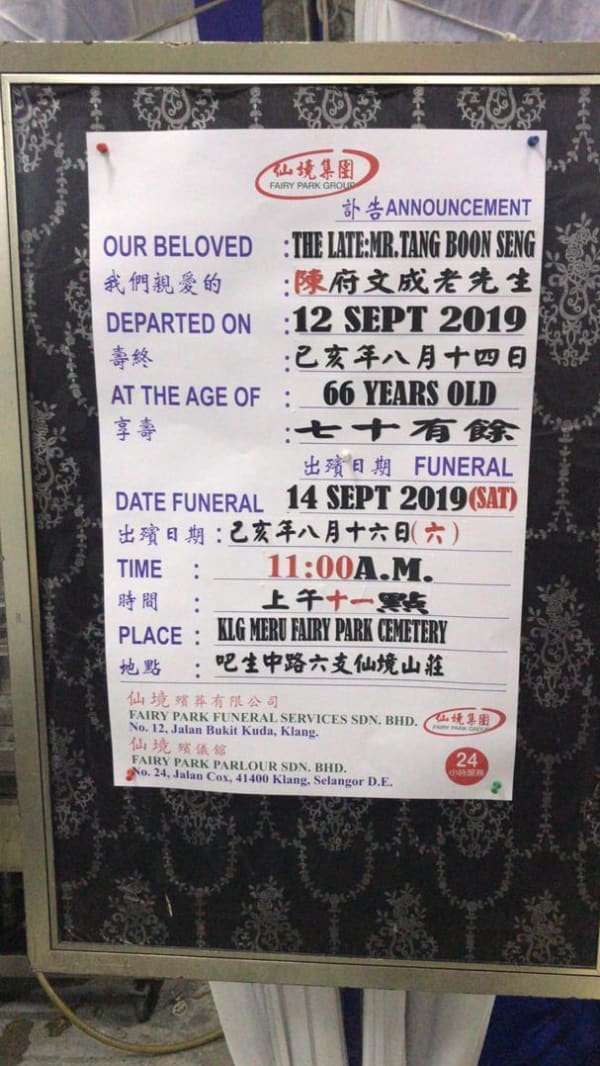 仙境集團
FAIRY PARK GROUP
訃告 ANNOUNCEMENT
OUR BELOVED : THE LATE:MR.TANG BOON SENG
我們親愛的 : 陳府文成老先生
DEPARTED ON : 12 SEPT 2019
壽終 : 己亥年八月十四日
AT THE AGE OF : 66 YEARS OLD
享壽 : 七十有餘
出殯日期 FUNERAL
DATE FUNERAL 14 SEPT 2019(SAT)
出殯日期 : 己亥年八月十六日(六)
TIME : 11:00A.M.
時間 : 上午十一點
PLACE : KLG MERU FAIRY PARK CEMETERY
地點 : 吧生中路六支仙境山莊
仙境殯葬有限公司
FAIRY PARK FUNERAL SERVICES SDN. BHD.
No. 12, Jalan Bukit Kuda, Klang.
仙境殯儀館
FAIRY PARK PARLOUR SDN. BHD.
No. 24, Jalan Cox, 41400 Klang, Selangor D.E.
仙境集團
FAIRY PARK GROUP
24
小時服務